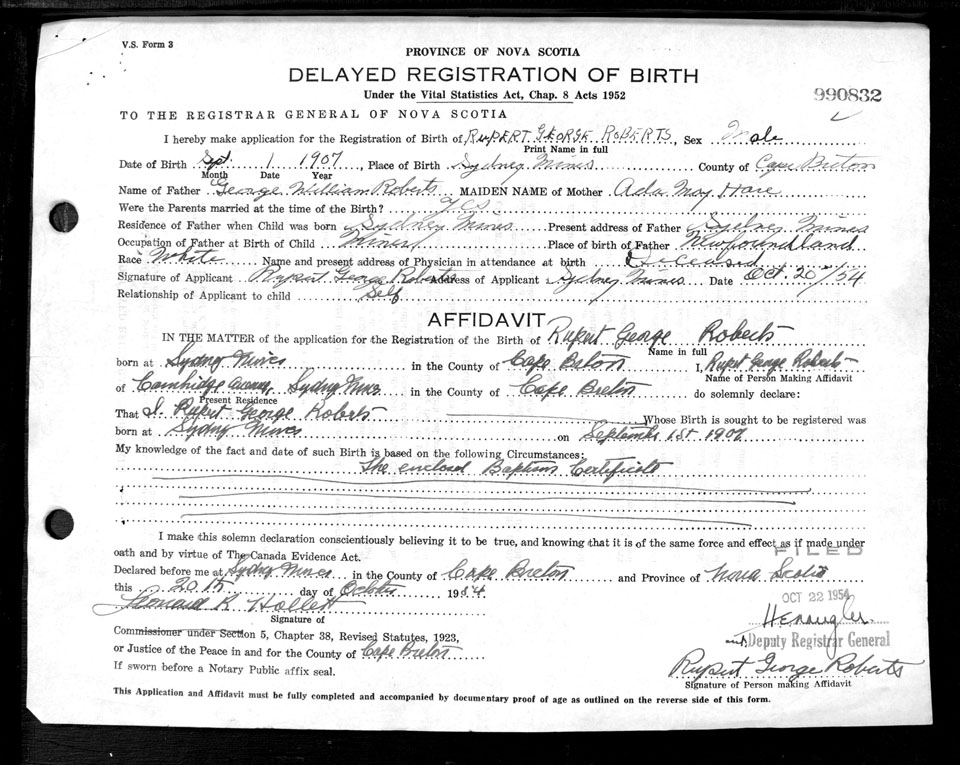 V.S. Form 3
PROVINCE OF NOVA SCOTIA
DELAYED REGISTRATION OF BIRTH
Under the Vital Statistics Act, Chap. 8 Acts 1952
990832
TO THE REGISTRAR GENERAL OF NOVA SCOTIA
I hereby make application for the Registration of Birth of RUPERT GEORGE ROBERTS, Sex Male
Print Name in full
Date of Birth Sept. 1 1907, Place of Birth Sydney Mines County of Cape Breton
Month Date Year
Name of Father George William Roberts MAIDEN NAME of Mother Ada May Hare
Were the Parents married at the time of the Birth? Yes
Residence of Father when Child was born Sydney Mines Present address of Father Sydney Mines
Occupation of Father at Birth of Child Miner Place of birth of Father Newfoundland
Race White Name and present address of Physician in attendance at birth Deceased
Signature of Applicant Rupert George Roberts Address of Applicant Sydney Mines Date Oct. 20/54
Relationship of Applicant to child Self
AFFIDAVIT
IN THE MATTER of the application for the Registration of the Birth of Rupert George Roberts
Name in full
born at Sydney Mines in the County of Cape Breton I, Rupert George Roberts
Name of Person Making Affidavit
of Cambridge Avenue, Sydney Mines in the County of Cape Breton do solemnly declare:
Present Residence
That I, Rupert George Roberts Whose Birth is sought to be registered was
born at Sydney Mines on September 1st 1907
My knowledge of the fact and date of such Birth is based on the following Circumstances:
The enclosed Baptism Certificate
I make this solemn declaration conscientiously believing it to be true, and knowing that it is of the same force and effect as if made under
oath and by virtue of The Canada Evidence Act.
FILED
Declared before me at Sydney Mines in the County of Cape Breton and Province of Nova Scotia
this 20th day of October 1954
OCT 22 1954
Leonard R. Hollett
Signature of
Commissioner under Section 5, Chapter 38, Revised Statutes, 1923,
Deputy Registrar General
or Justice of the Peace in and for the County of Cape Breton
Rupert George Roberts
If sworn before a Notary Public affix seal.
Signature of Person making Affidavit
This Application and Affidavit must be fully completed and accompanied by documentary proof of age as outlined on the reverse side of this form.